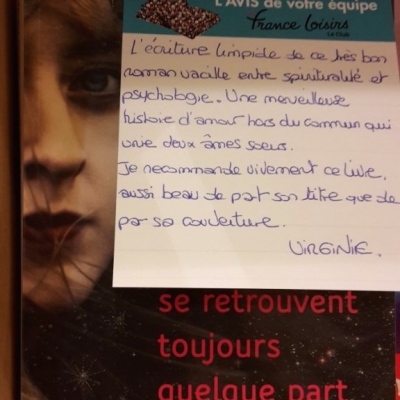 L'AVIS de votre équipe
France Loisirs
Le Club
L'écriture limpide de ce très bon
roman vacille entre spiritualité et
psychologie. Une merveilleuse
histoire d'amour hors du commun qui
unie deux âmes soeurs.
Je recommande vivement ce livre,
aussi beau de part son titre que de
par sa couverture.
VIRGINIE.
se retrouvent
toujours
quelque part